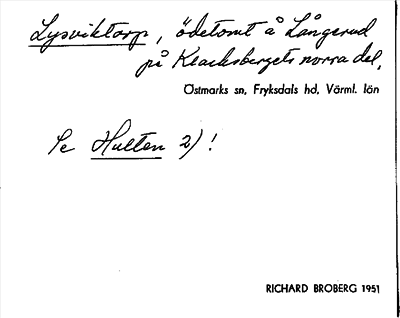 Lysviktorp, ödetomt å Långerud
på Klacksbergets norra del,
Östmarks sn, Fryksdals hd, Värml. län
Se Hulten 2) !
RICHARD BROBERG 1951